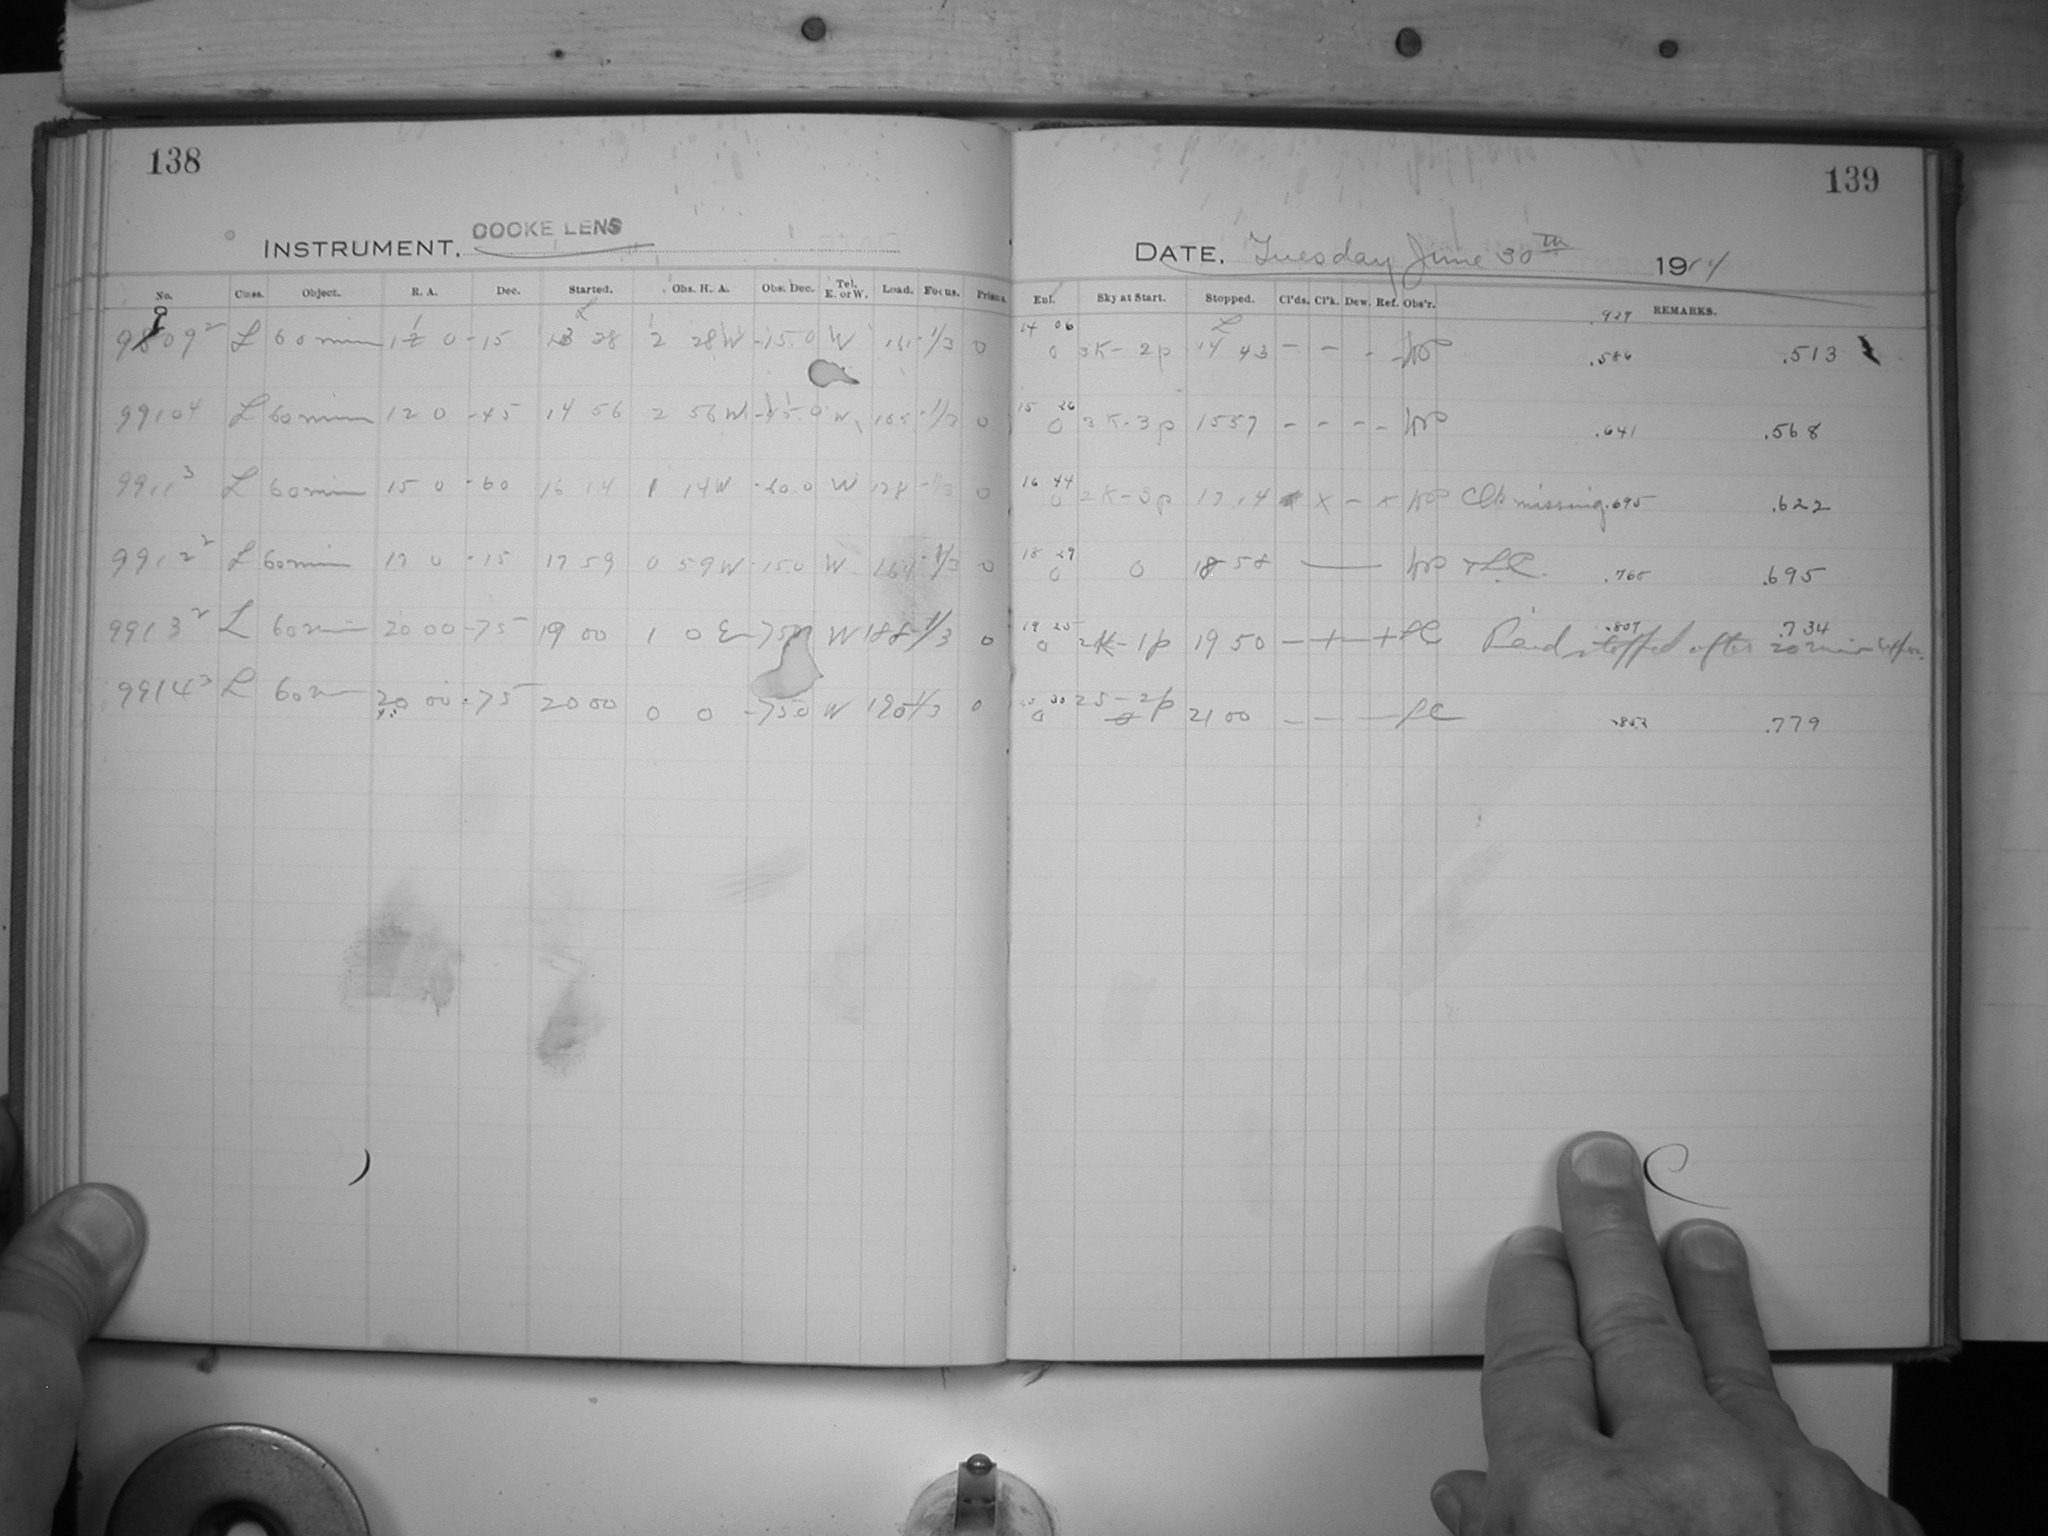 138
139
INSTRUMENT. COOKE LENS
DATE. Tuesday June 30th 1914
No. Class. Object. R. A. Dec. Started. Obs. H. A. Obs. Dec. Tel. E. or W. Load. Focus. Prisms.
Enl. Sky at Start. Stopped. Cl'ds. Cl'k. Dew. Ref. Obs'r. REMARKS.
.927
9909 2 L 60 min 11 0 -15 13 28 2 28 W -15.0 W 161 -1/3 0
14 06 0 3K-2p 14 43 - - - - .586 .513
9910 4 L 60 min 12 0 -45 14 56 2 56 W -45.0 W 165 -1/3 0
15 26 0 3K-3p 15 57 - - - - .641 .568
9911 3 L 60 min 15 0 -60 16 14 1 14 W -60.0 W 178 -1/3 0
16 44 0 2K-3p 17 14 x x - x Clk missing .695 .622
9912 2 L 60 min 17 0 -15 17 59 0 59 W -15.0 W 164 -1/3 0
18 29 0 0 18 58 L.C. .768 .695
9913 2 L 60 min 20 00 -75 19 00 1 0 E -75.0 W 188 -1/3 0
19 25 0 2K-1p 19 50 - + - + LC .807 .734
Pend stopped after 20 min
9914 3 L 60 m 20 00 -75 20 00 0 0 -75.0 W 190 -1/3 0
20 30 0 2S-2p 21 00 - - - LC .853 .779